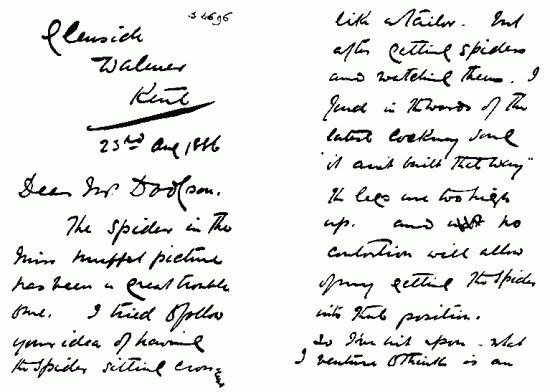 Glenside
Walmer
Kent
23rd Aug 1886
Dear Mr Dodgson.
The spider in the
Miss Muffet picture
has been a great trouble
to me. I tried to follow
your idea of having
the spider sitting cross
like a tailor. But
after getting spiders
and watching them, I
find in the words of the
latest cockney song
"it ain't built that way"
The legs are too high
up. and no
contortion will allow
of my getting the spider
into that position.
So I've hit upon - what
I venture to think is an